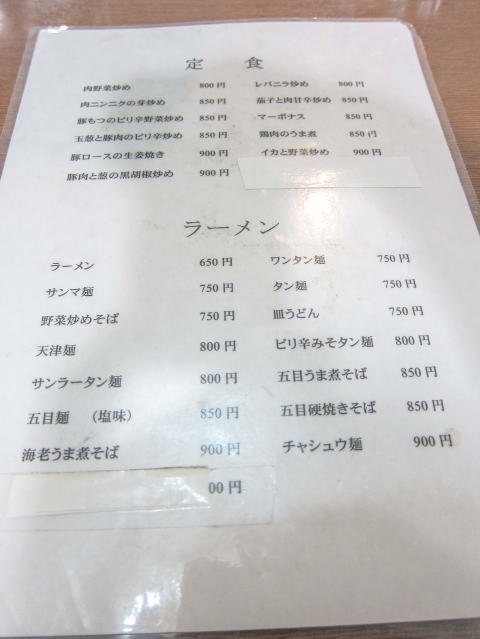 定 食
肉野菜炒め 800円 レバニラ炒め 800円
肉ニンニクの芽炒め 850円 茄子と肉甘辛炒め 850円
豚もつのピリ辛野菜炒め 850円 マーボナス 850円
玉葱と豚肉のピリ辛炒め 850円 鶏肉のうま煮 850円
豚ロースの生姜焼き 900円 イカと野菜炒め 900円
豚肉と葱の黒胡椒炒め 900円
ラーメン
ラーメン 650円 ワンタン麺 750円
サンマ麺 750円 タン麺 750円
野菜炒めそば 750円 皿うどん 750円
天津麺 800円 ピリ辛みそタン麺 800円
サンラータン麺 800円 五目うま煮そば 850円
五目麺 （塩味） 850円 五目硬焼きそば 850円
海老うま煮そば 900円 チャシュウ麺 900円
00円